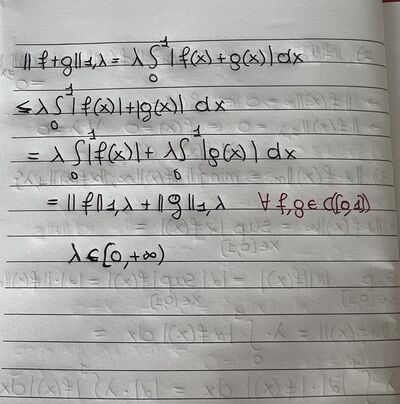 ||f+g||₁,λ = λ∫₀¹|f(x)+g(x)|dx
≤λ∫₀¹|f(x)|+|g(x)| dx
= λ∫₀¹|f(x)|+λ∫₀¹|g(x)| dx
= ||f||₁,λ + ||g||₁,λ ∀f,g∈C([0,1])
λ∈[0,+∞)